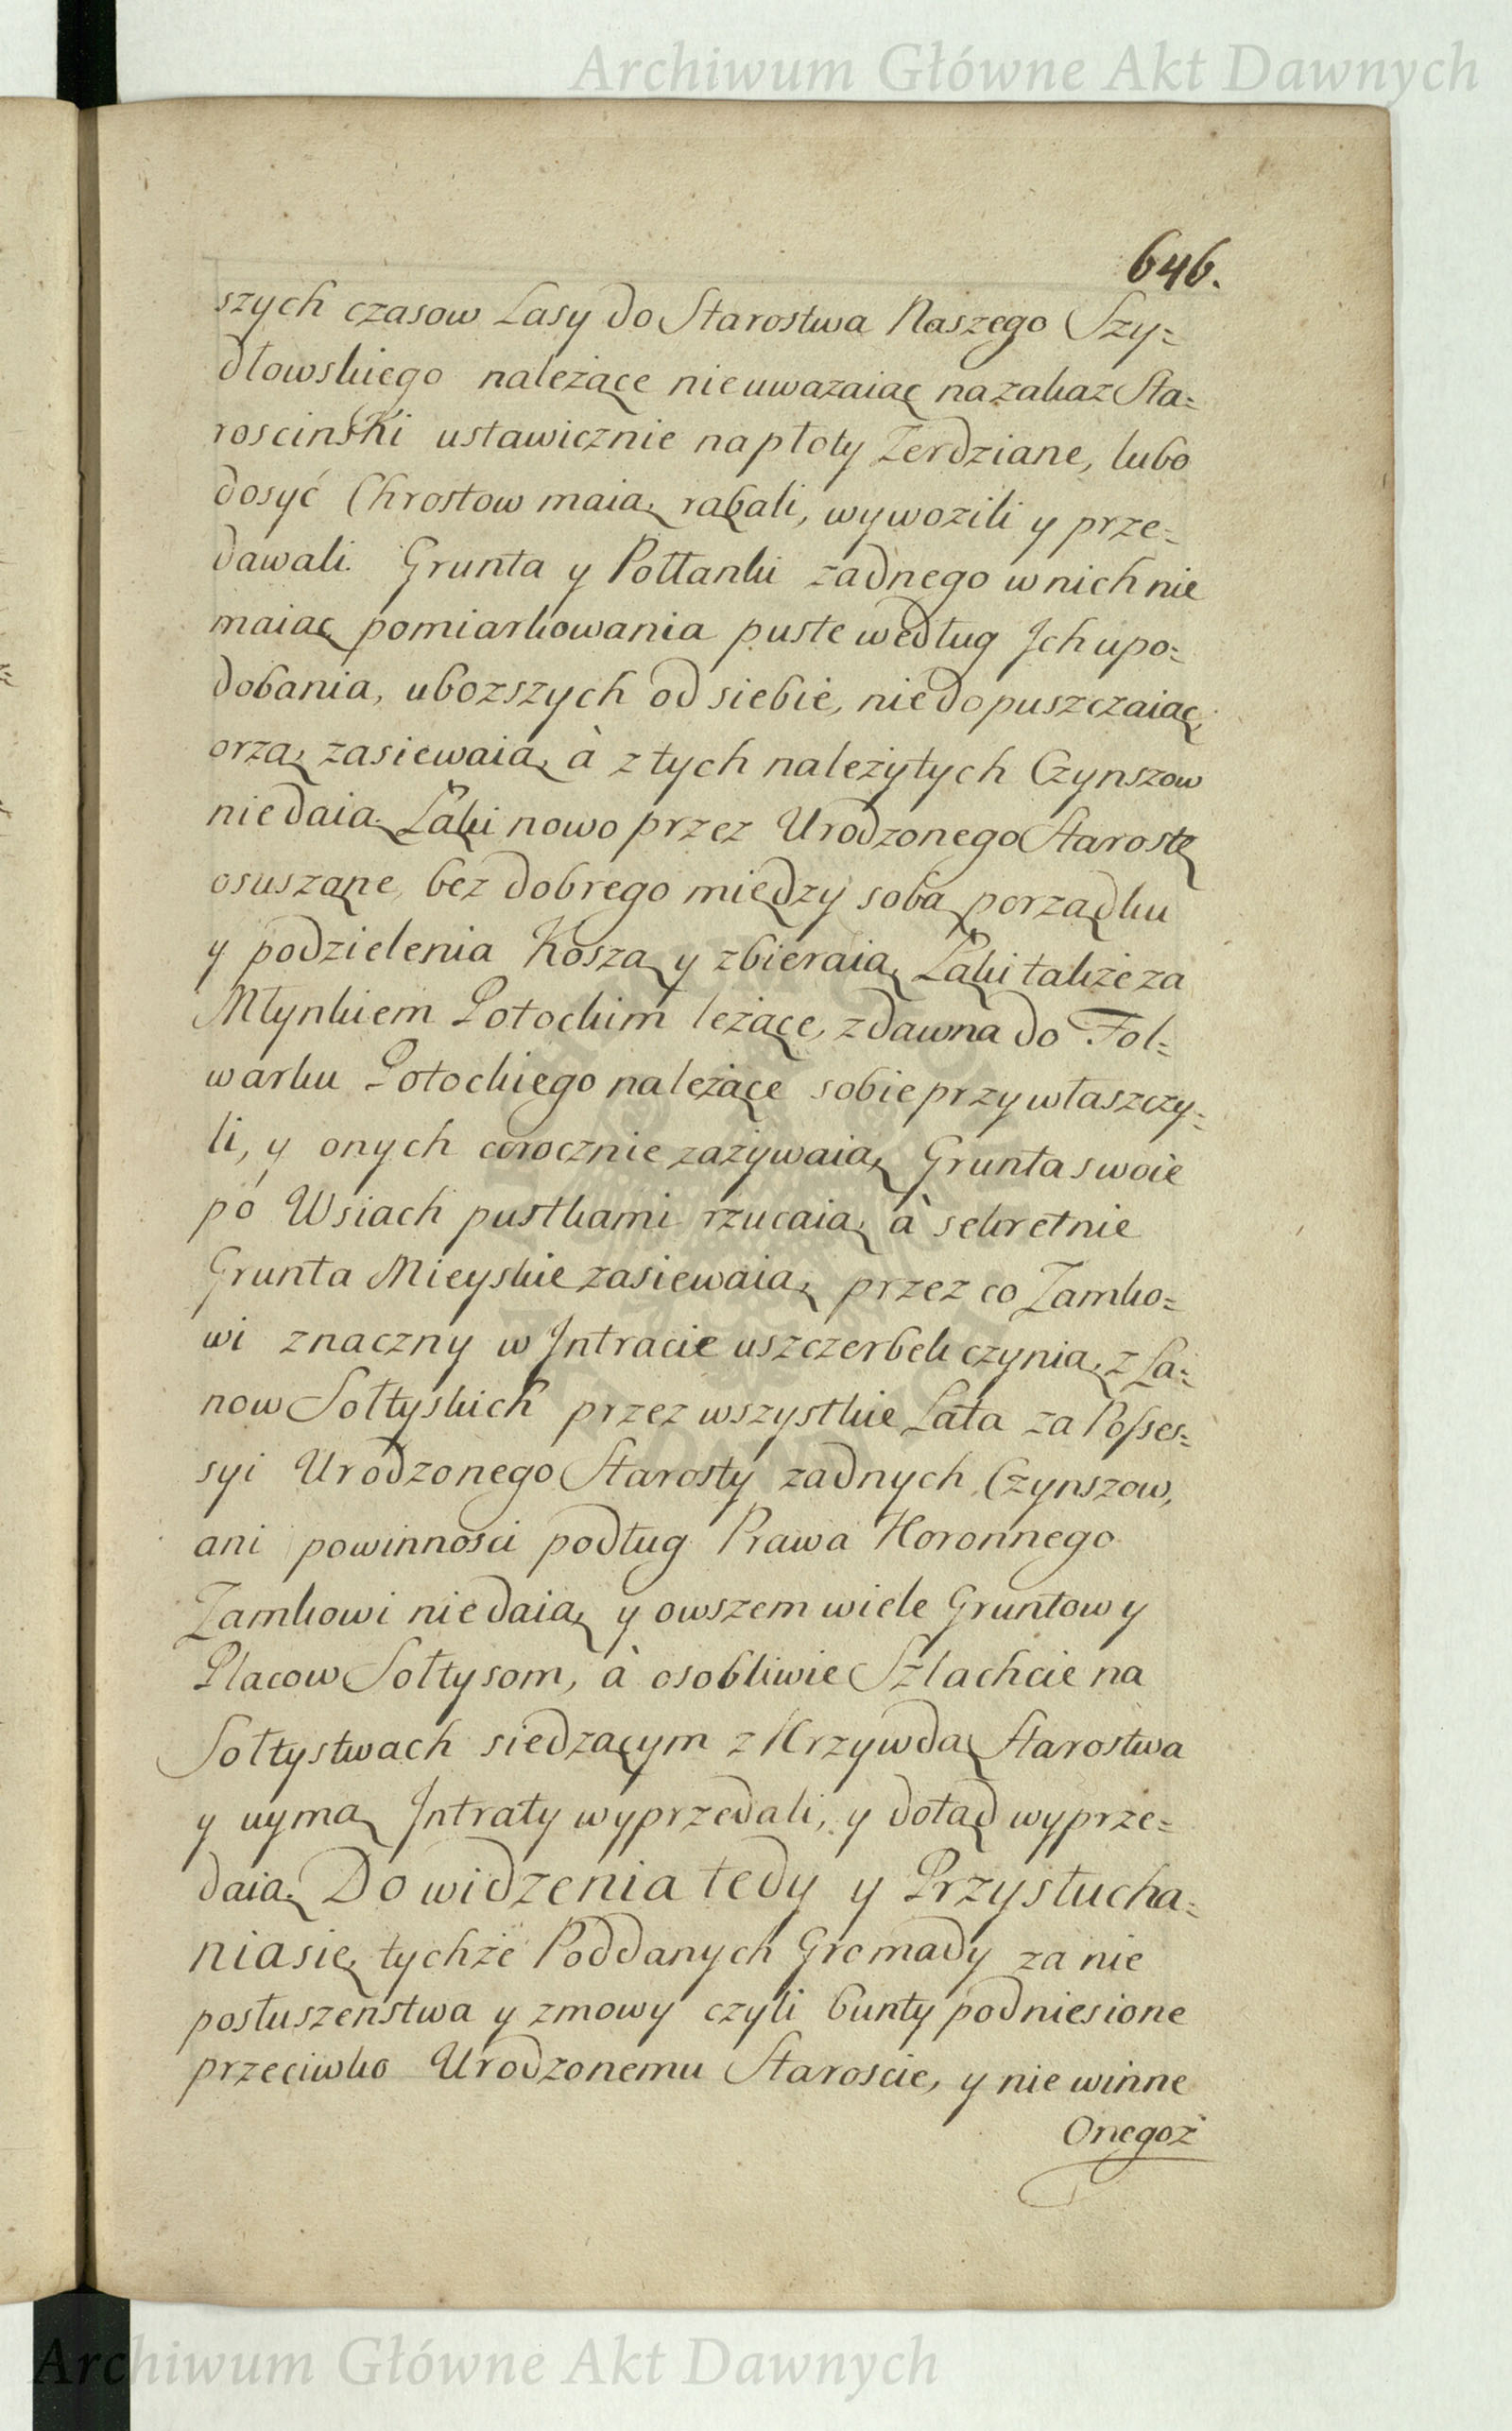 Archiwum Główne Akt Dawnych
646.
szych czasow Lasy do Starostwa Naszego Szy=
dłowskiego należące nieuwazaiąc na zakaz Sta=
roscinski ustawicznie na płoty Zerdziane, lubo
dosyć Chrostow maią, rąbali, wywozili y prze=
dawali. Grunta y Połłanki zadnego w nich nie
maiąc pomiarkowania puste według Ich upo=
dobania, ubozszych od siebie, niedopuszczaiąc,
orzą, zasiewaią, à z tych należytych Czynszow
niedaią. Łąki nowo przez Urodzonego Starostę
osuszone, bez dobrego między sobą porządku
y podzielenia Koszą y zbieraią, Łąki także za
Młynkiem Potockim leżące, zdawna do Fol=
warku Potockiego należące sobie przywłaszczy=
li, y onych corocznie zażywaią, Grunta swoie
po Wsiach pustkami rzucaią, à sekretnie
Grunta Mieyskie zasiewaią, przez co Zamko=
wi znaczny w Intracie uszczerbek czynią, z Ła=
now Sołtyskich przez wszystkie Lata za Posses=
syi Urodzonego Starosty zadnych Czynszow,
ani powinności podług Prawa Koronnego
Zamkowi niedaią, y owszem wiele Gruntow y
Placow Sołtysom, à osobliwie Szlachcie na
Sołtystwach siedzącym z Krzywdą Starostwa
y uymą Intraty wyprzedali, y dotąd wyprze=
daią. Do widzenia tedy y Przysłucha=
nia się, tychże Poddanych Gromady za nie
posłuszeństwa y zmowy czyli bunty podniesione
przeciwko Urodzonemu Staroscie, y nie winne
Onegoż
Archiwum Główne Akt Dawnych